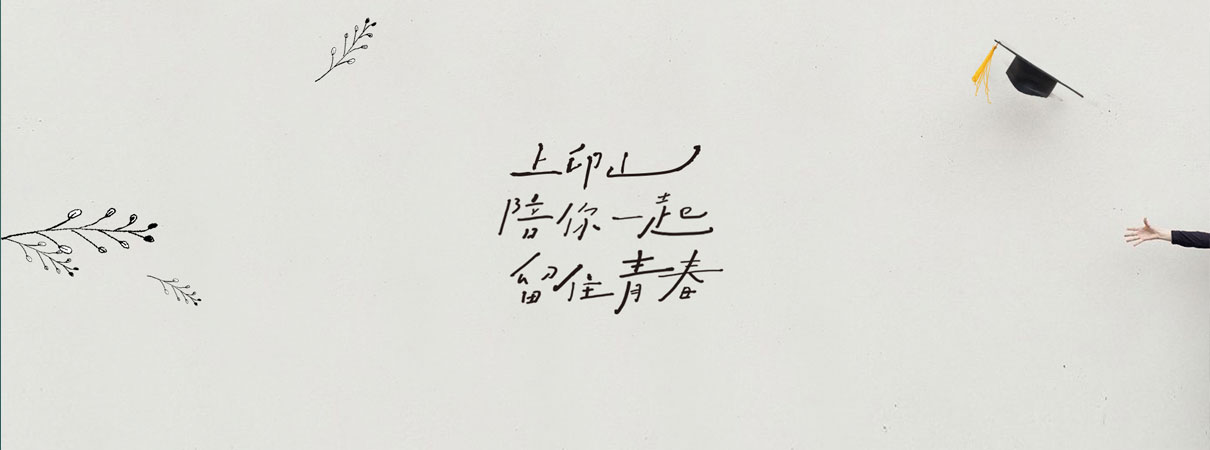 上印山
陪你一起
留住青春